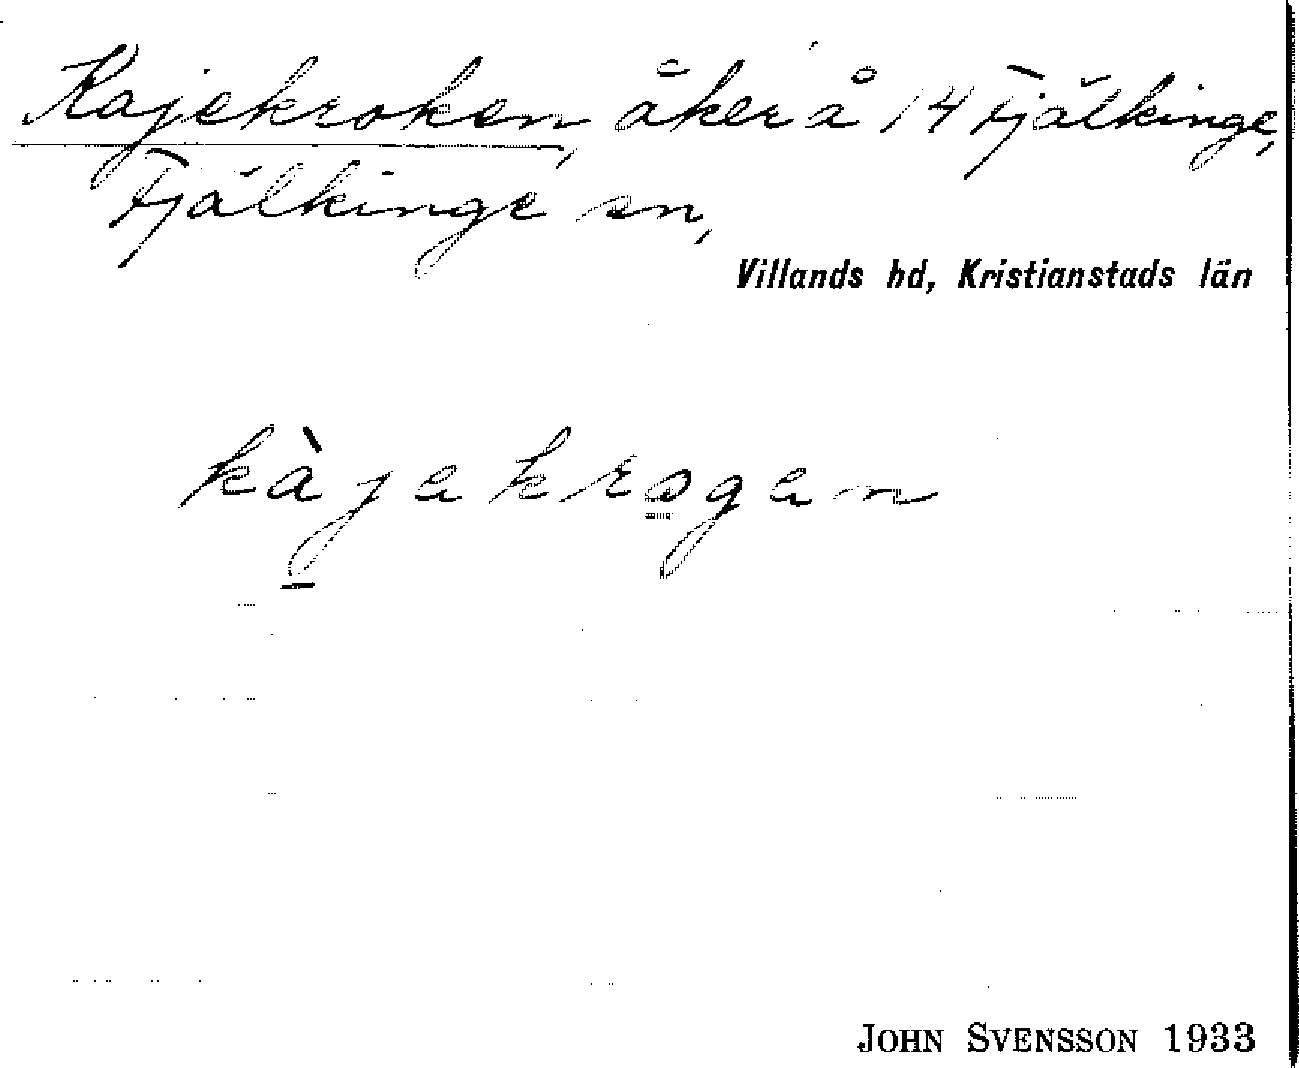 Kajekroken, åker å 14 Fjälkinge,
Fjälkinge sn,
Villands hd, Kristianstads län
kàjekrogen
JOHN SVENSSON 1933